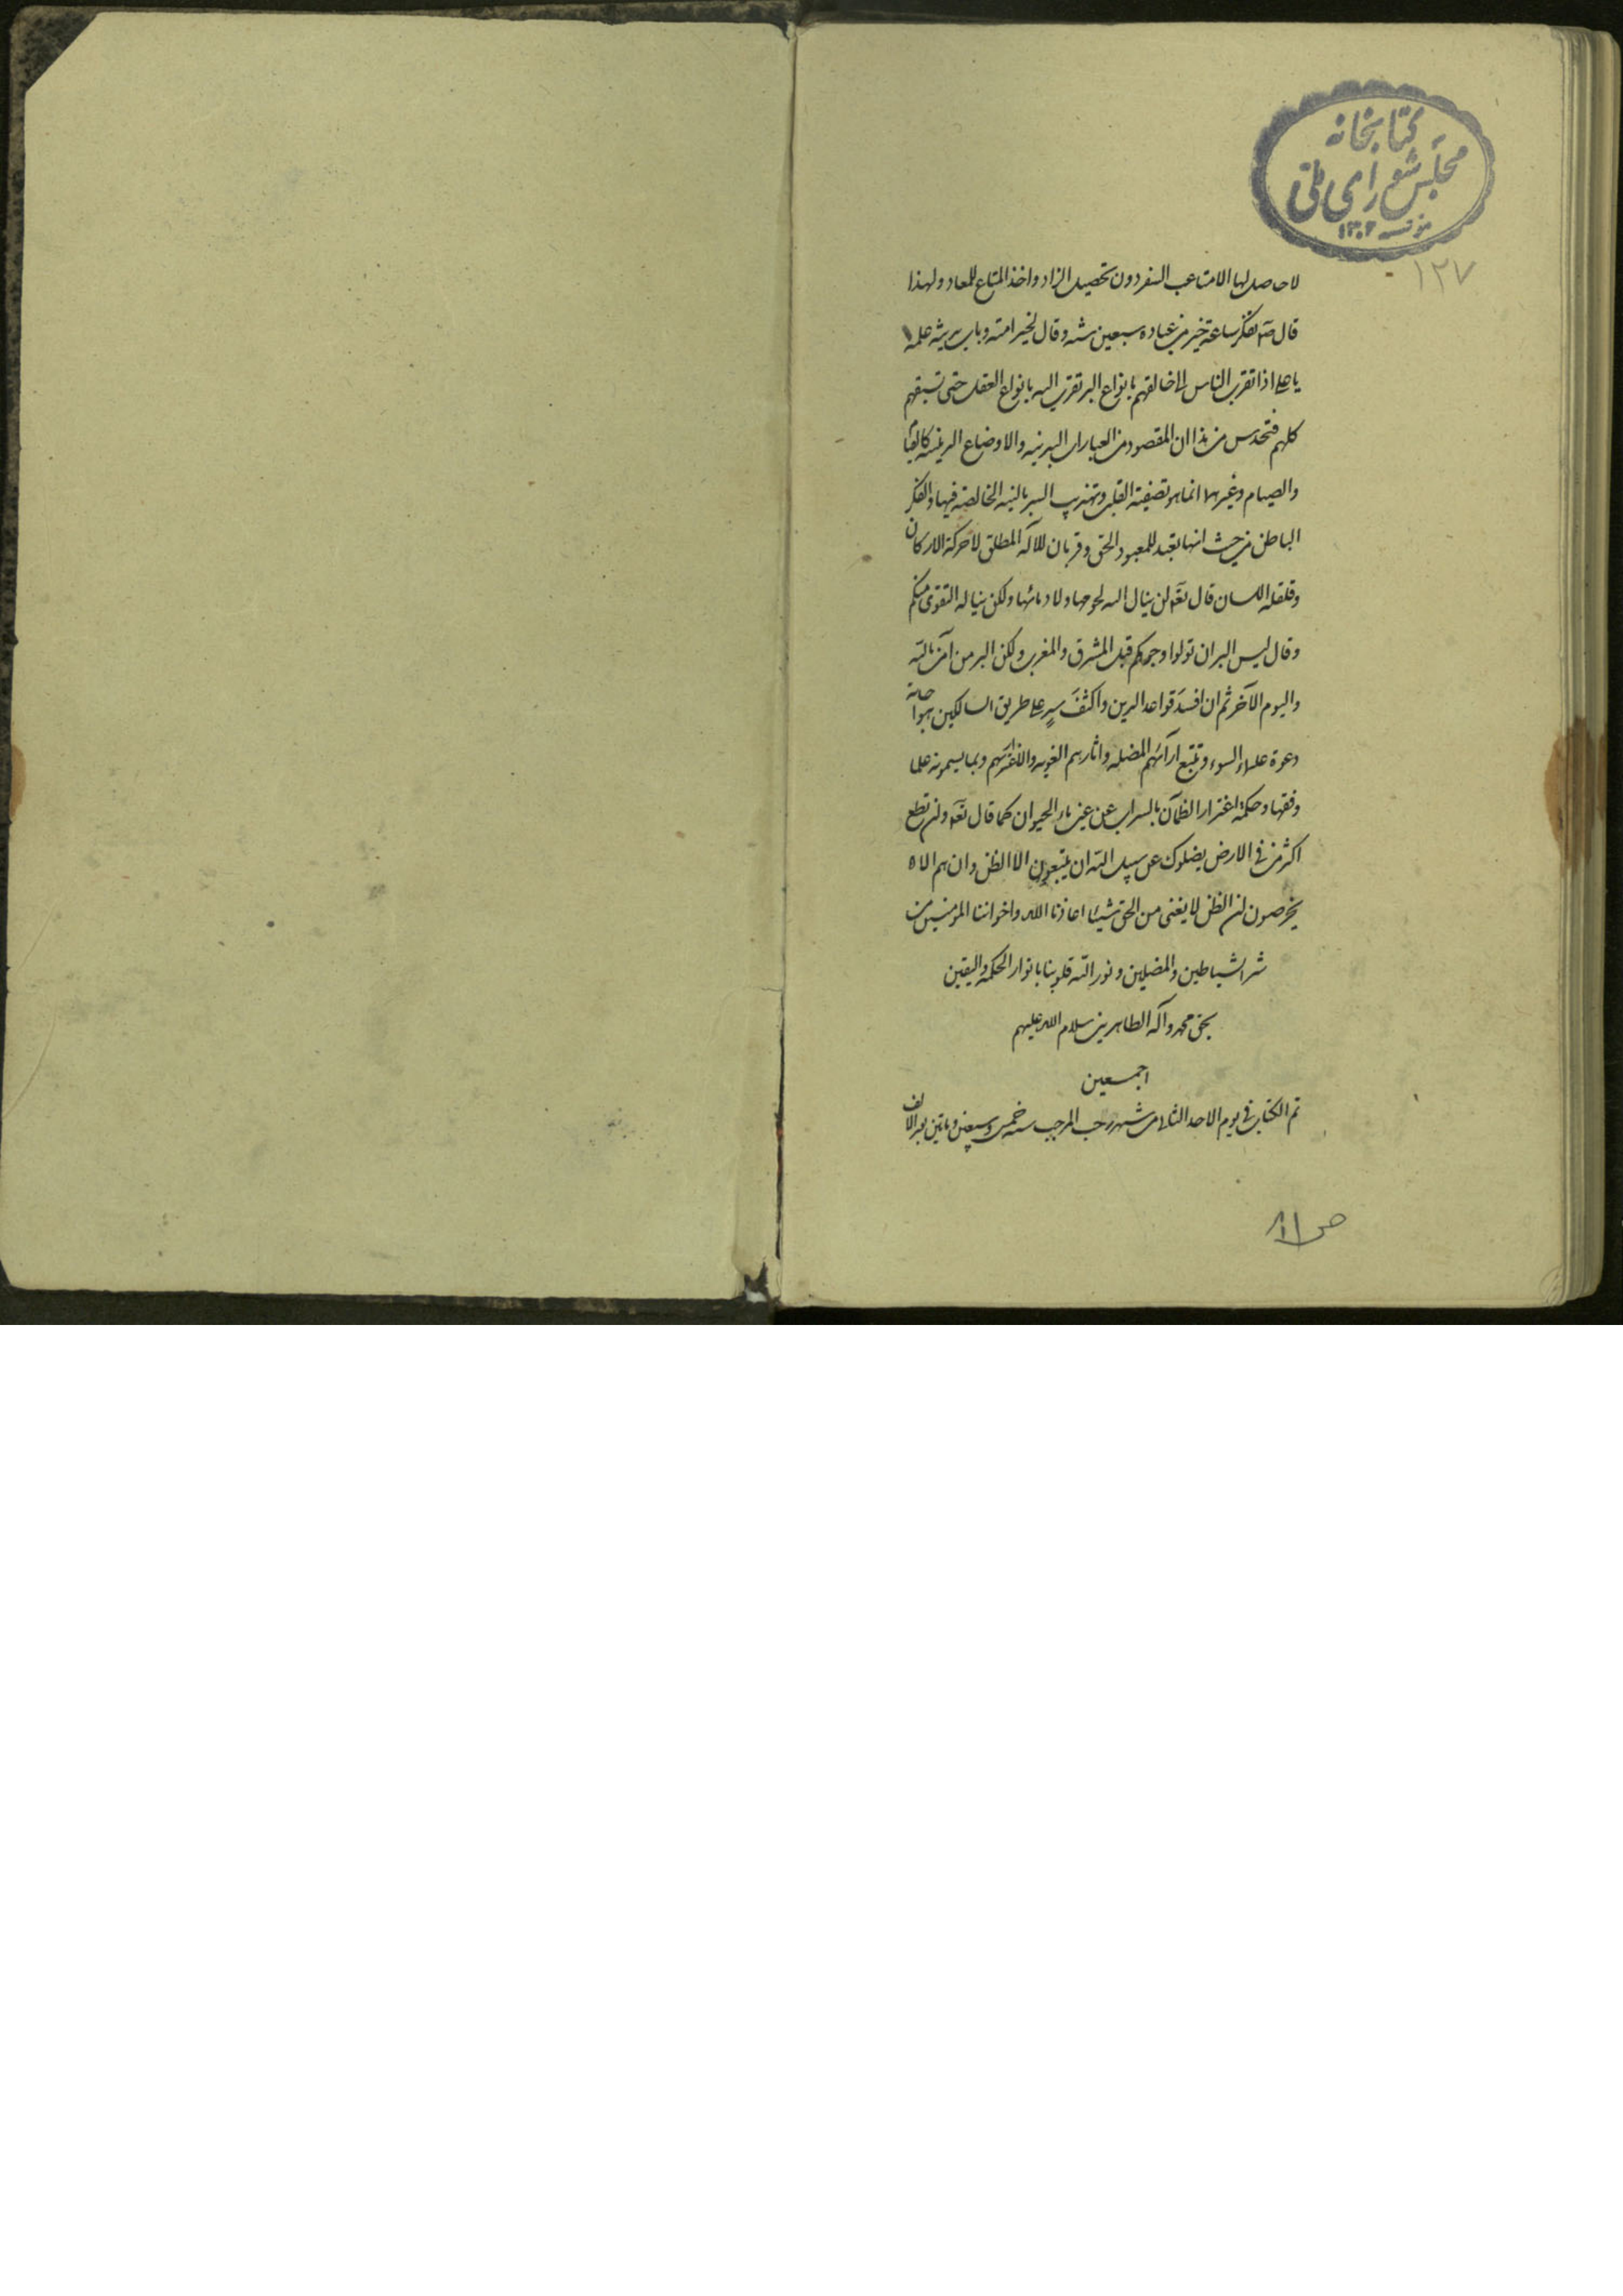 كتابخانه
مجلس شورای ملی
مؤسسه ۱۳۰۲
۱۲۷
لا حاصل لها الا متاعب السفر دون تحصيل الزاد و اخذ المتاع للمعاد و لهذا
قال صم تفكر ساعة خير من عباده سبعين سنه و قال لخير امته و باب مدينة علمه
يا علی اذا تقرب الناس الی خالقهم بانواع البر تقرب اليه بانواع العقل حتی تسبقهم
كلهم فتحدس من هذا ان المقصود من العبارات البدنيه و الاوضاع الدينيه كالقيام
و الصيام و غيرهما انما هو تصفية القلب و تهذيب السر بالنيه الخالصة فيها و الفكر
الباطن من حيث انها تعبد للمعبود الحق و قربان للاله المطلق لا حركة الاركان
و قلقلة اللسان قال تعه لن ينال الله لحومها و لا دمائها و لكن يناله التقوی منكم
و قال ليس البر ان تولوا وجوهكم قبل المشرق و المغرب و لكن البر من آمن بالله
و اليوم الآخر ثم ان افسد قواعد الدين و اكثف سد علی طريق السالكين هو اجابة
دعوة علماء السوء و تتبع ارآئهم المضله و اثارهم المغويه و الاغترار بهم و بما يسمونه علما
و فقها و حكمة اغترار الظمآن بالسراب عن عين ماء الحيوان كما قال تعه و ان تطع
اكثر من فی الارض يضلوك عن سبيل الله ان يتبعون الا الظن و ان هم الا
يخرصون ان الظن لا يغنی من الحق شيئا اعاذنا الله و اخواننا المومنين من
شر الشياطين و المضلين و نور الله قلوبنا بانوار الحكمه و اليقين
بحق محمد و آله الطاهرين سلام الله عليهم
اجمعين
تم الكتاب فی يوم الاحد الثالث من شهر رجب المرجب سنه خمس و سبعين و ماتين بعد الالف